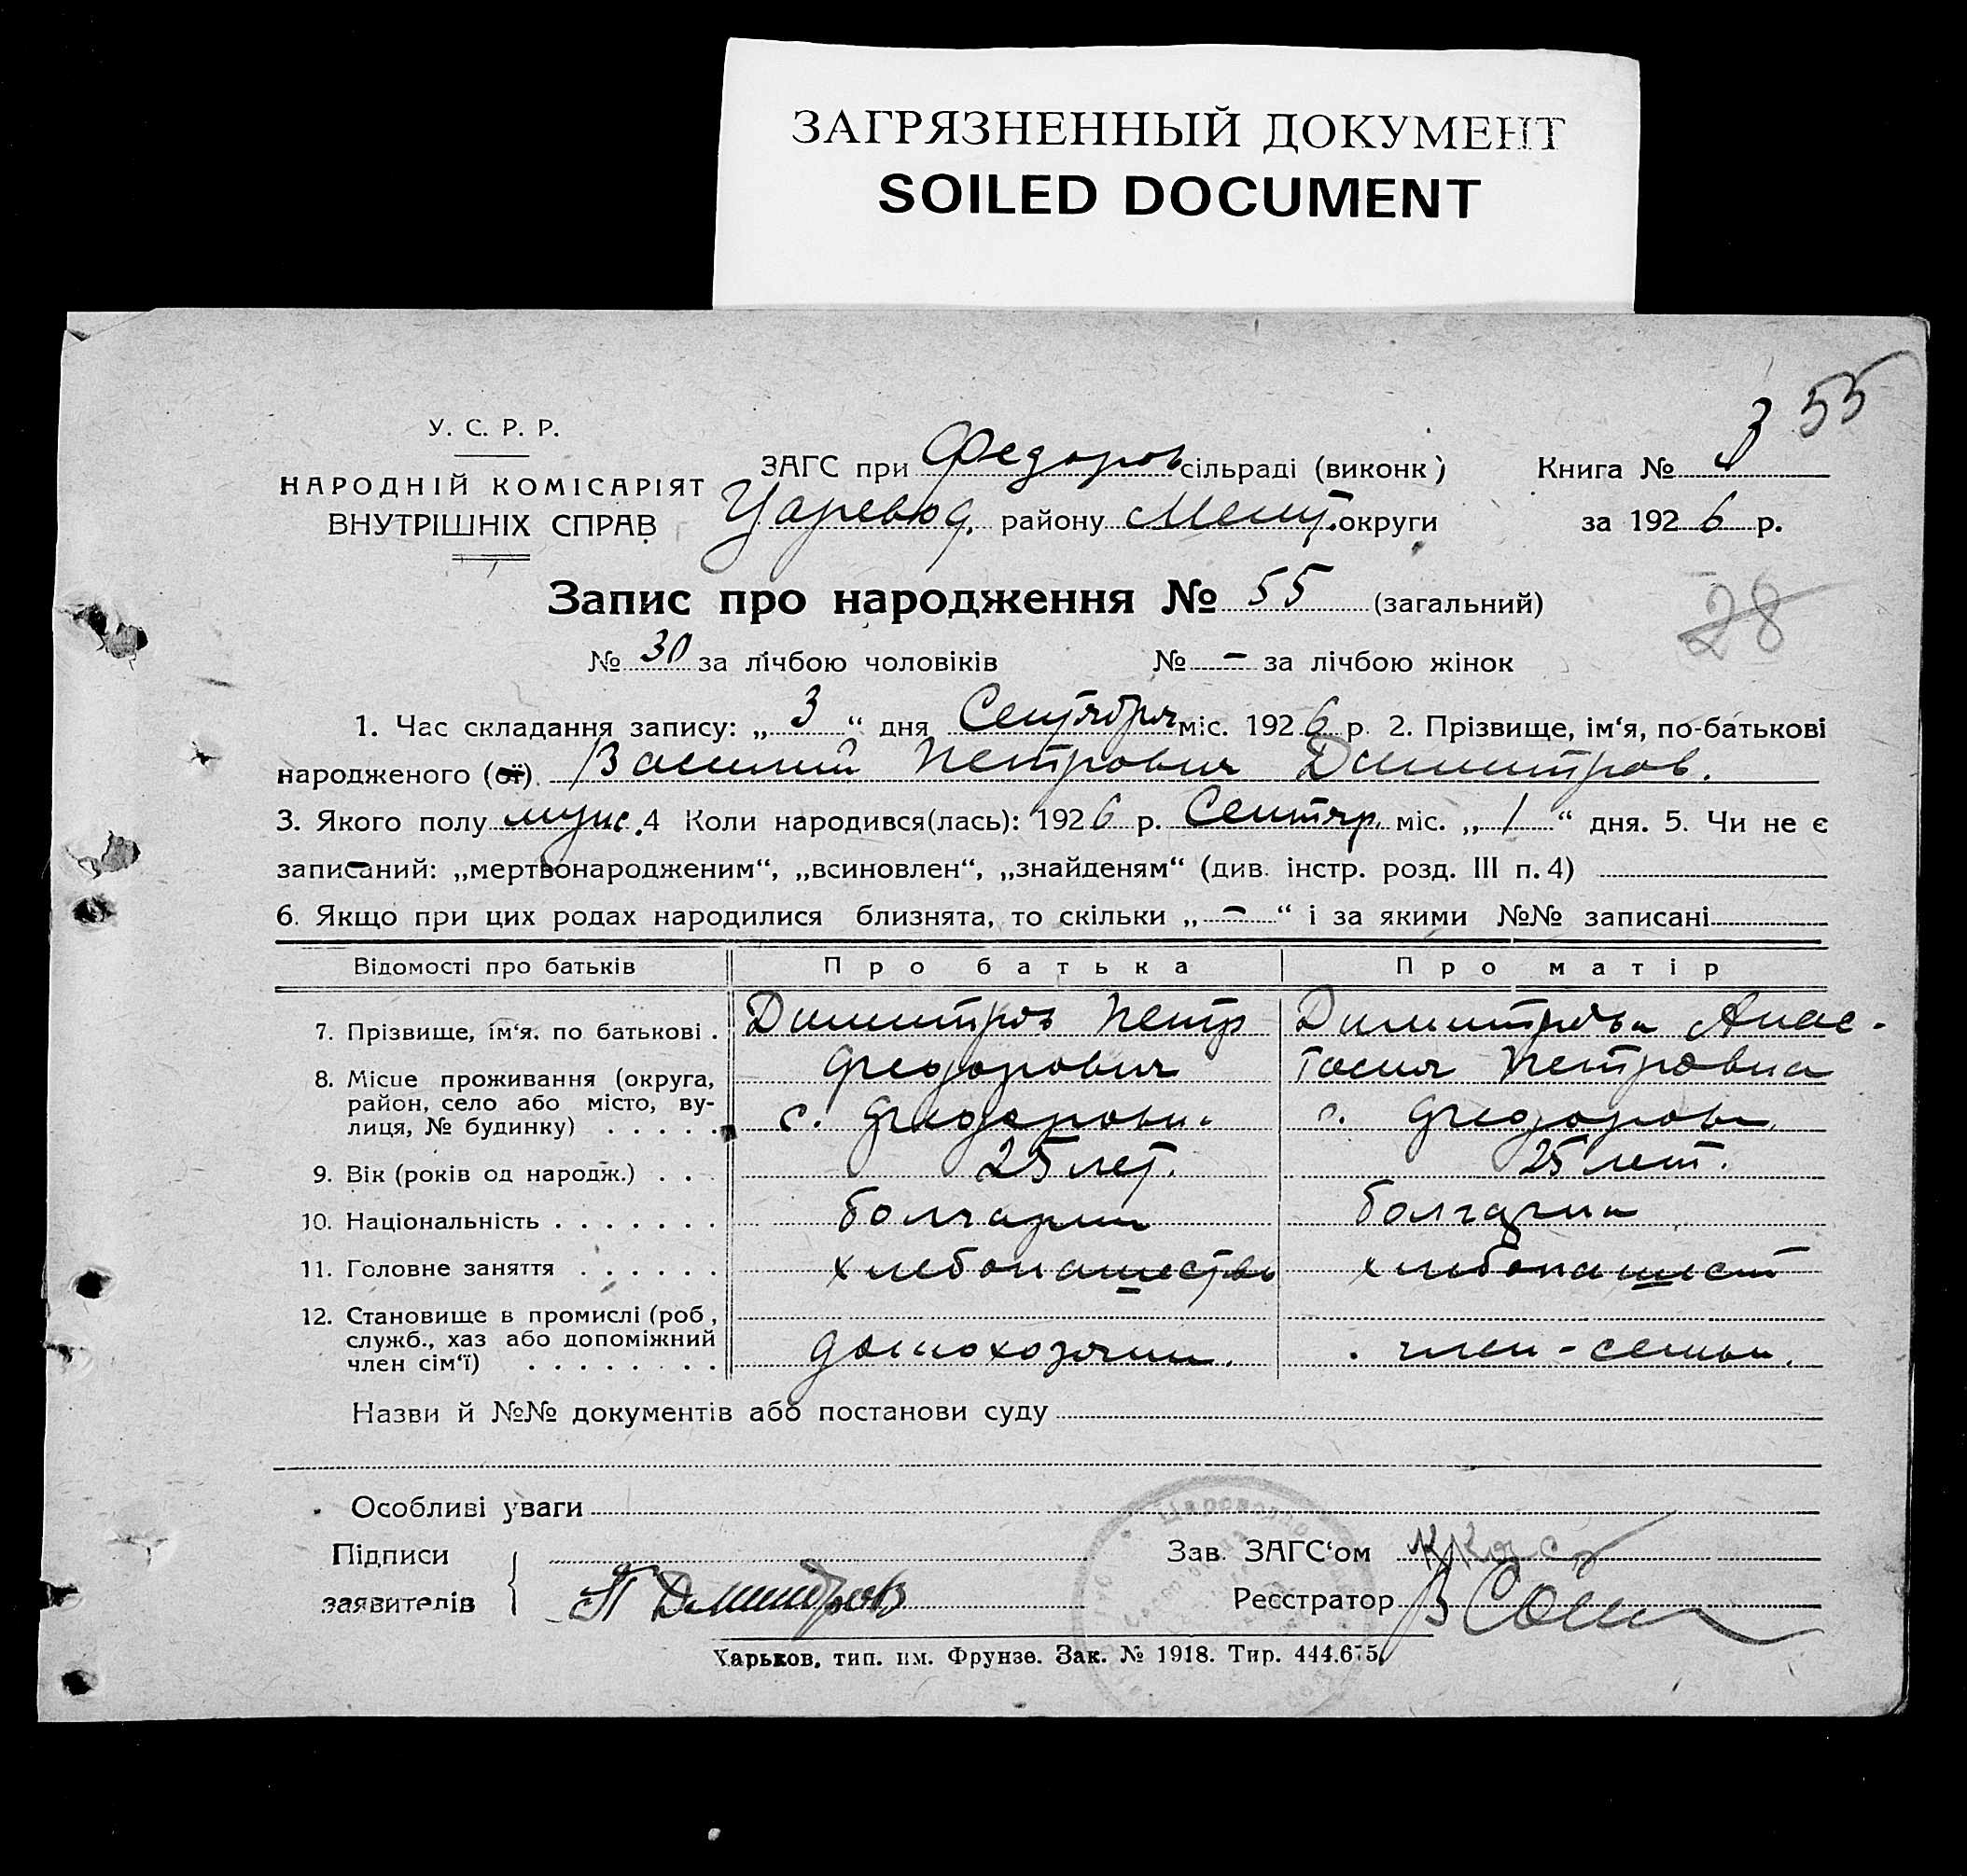 ЗАГРЯЗНЕННЫЙ ДОКУМЕНТ
SOILED DOCUMENT
55
У. С. Р. Р.
НАРОДНІЙ КОМІСАРІЯТ
ВНУТРІШНІХ СПРАВ
ЗАГС при Федоров сільраді (виконк)
Книга № 3
Царевод. району Мелит. округи
за 1926 р.
Запис про народження № 55 (загальний)
28
№ 30 за лічбою чоловіків № - за лічбою жінок
1. Час складання запису: „ 3 “ дня Сентября міс. 1926 р. 2. Прізвище, ім‘я, по-батькові
народженого (ої) Василий Петрович Димитров.
3. Якого полу муж. 4 Коли народився(лась): 1926 р. Сентяр. міс. „ 1 “ дня. 5. Чи не є
записаний: „мертвонародженим“, „всиновлен“, „знайденям“ (див. інстр. розд. III п. 4)
6. Якщо при цих родах народилися близнята, то скільки „ - “ і за якими №№ записані
Відомості про батьків Про батька Про матір
7. Прізвище, ім‘я. по батькові . Димитров Петр Димитрова Анас-
Федорович тасия Петровна
8. Місце проживання (округа,
район, село або місто, ву-
лиця, № будинку) . . . . . с. Федоровка с. Федоровк
9. Вік (років од народж.) . . . 25 лет. 25 лет.
10. Національність . . . . . . . болгарин болгарка
11. Головне заняття . . . . . . хлебопашество хлебопашест
12. Становище в промислі (роб,
служб., хаз або допоміжний
член сім‘ї) . . . . . . . . домохозяин. член-семьи.
Назви й №№ документів або постанови суду
Особливі уваги
Підписи
заявителів
П Дмитров
Зав. ЗАГС‘ом
Реєстратор
Харьков, тип. им. Фрунзе. Зак. № 1918. Тир. 444.675.